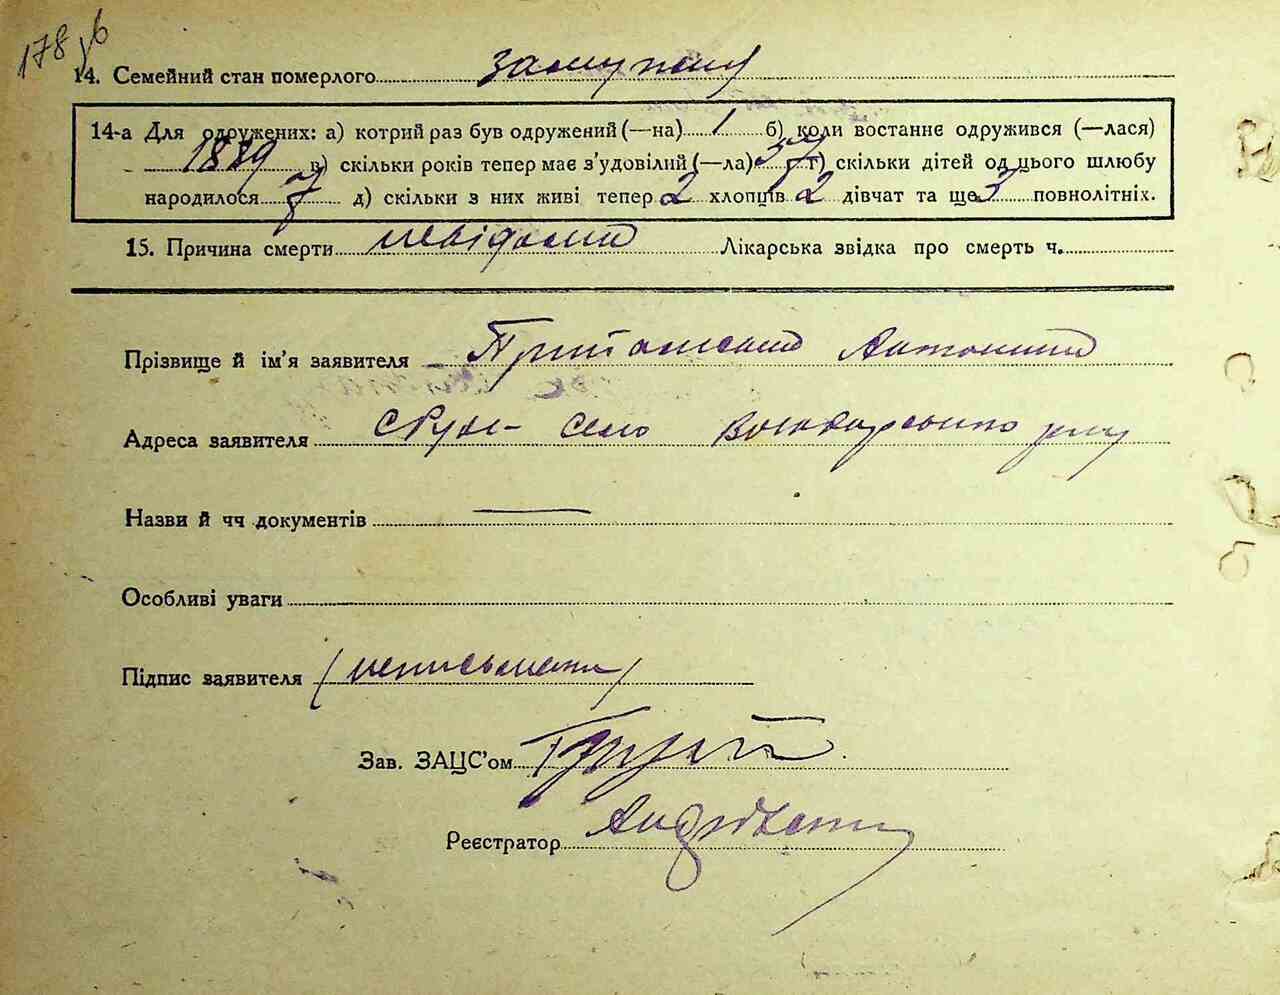 178 зв
14. Семейний стан померлого замужну
14-а Для одружених: а) котрий раз був одружений (—на) 1 б) коли востаннє одружився (—лася)
1889 в) скільки років тепер має з'удовілий (—ла) 57 г) скільки дітей од цього шлюбу
народилося 7 д) скільки з них живі тепер 2 хлопців 2 дівчат та ще 3 повнолітніх.
15. Причина смерти невідомий Лікарська звідка про смерть ч.
Прізвище й ім'я заявителя Антоний
Адреса заявителя село
Назви й чч документів —
Особливі уваги
Підпис заявителя (неписьменн)
Зав. ЗАЦС'ом
Реєстратор